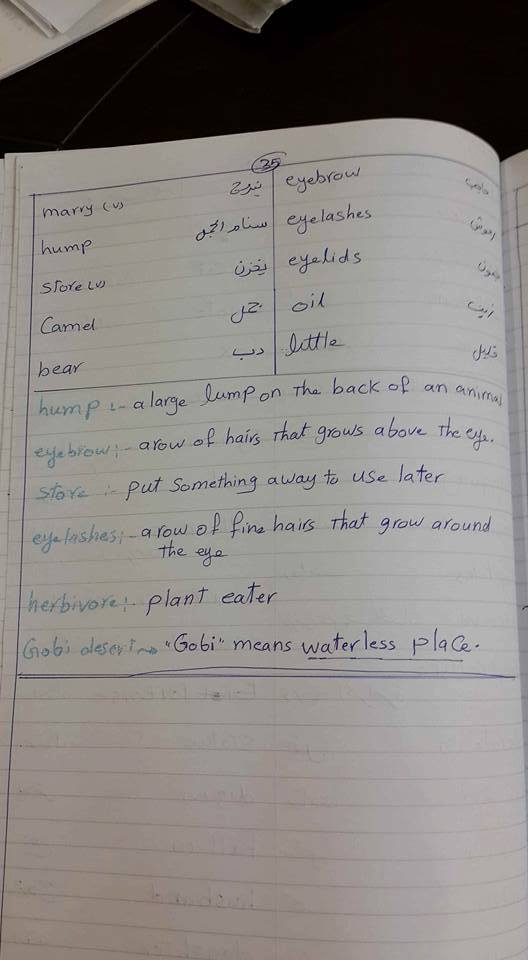 35
marry (v) يتزوج eyebrow حاجب
hump سنام الجمل eyelashes رموش
store (v) يخزن eyelids جفون
Camel جمل oil زيت
bear دب little قليل
hump :- a large lump on the back of an animal
eyebrow :- arow of hairs that grows above the eye.
store :- put something away to use later
eyelashes :- a row of fine hairs that grow around
the eye
herbivore :- plant eater
Gobi desert → "Gobi" means waterless place.